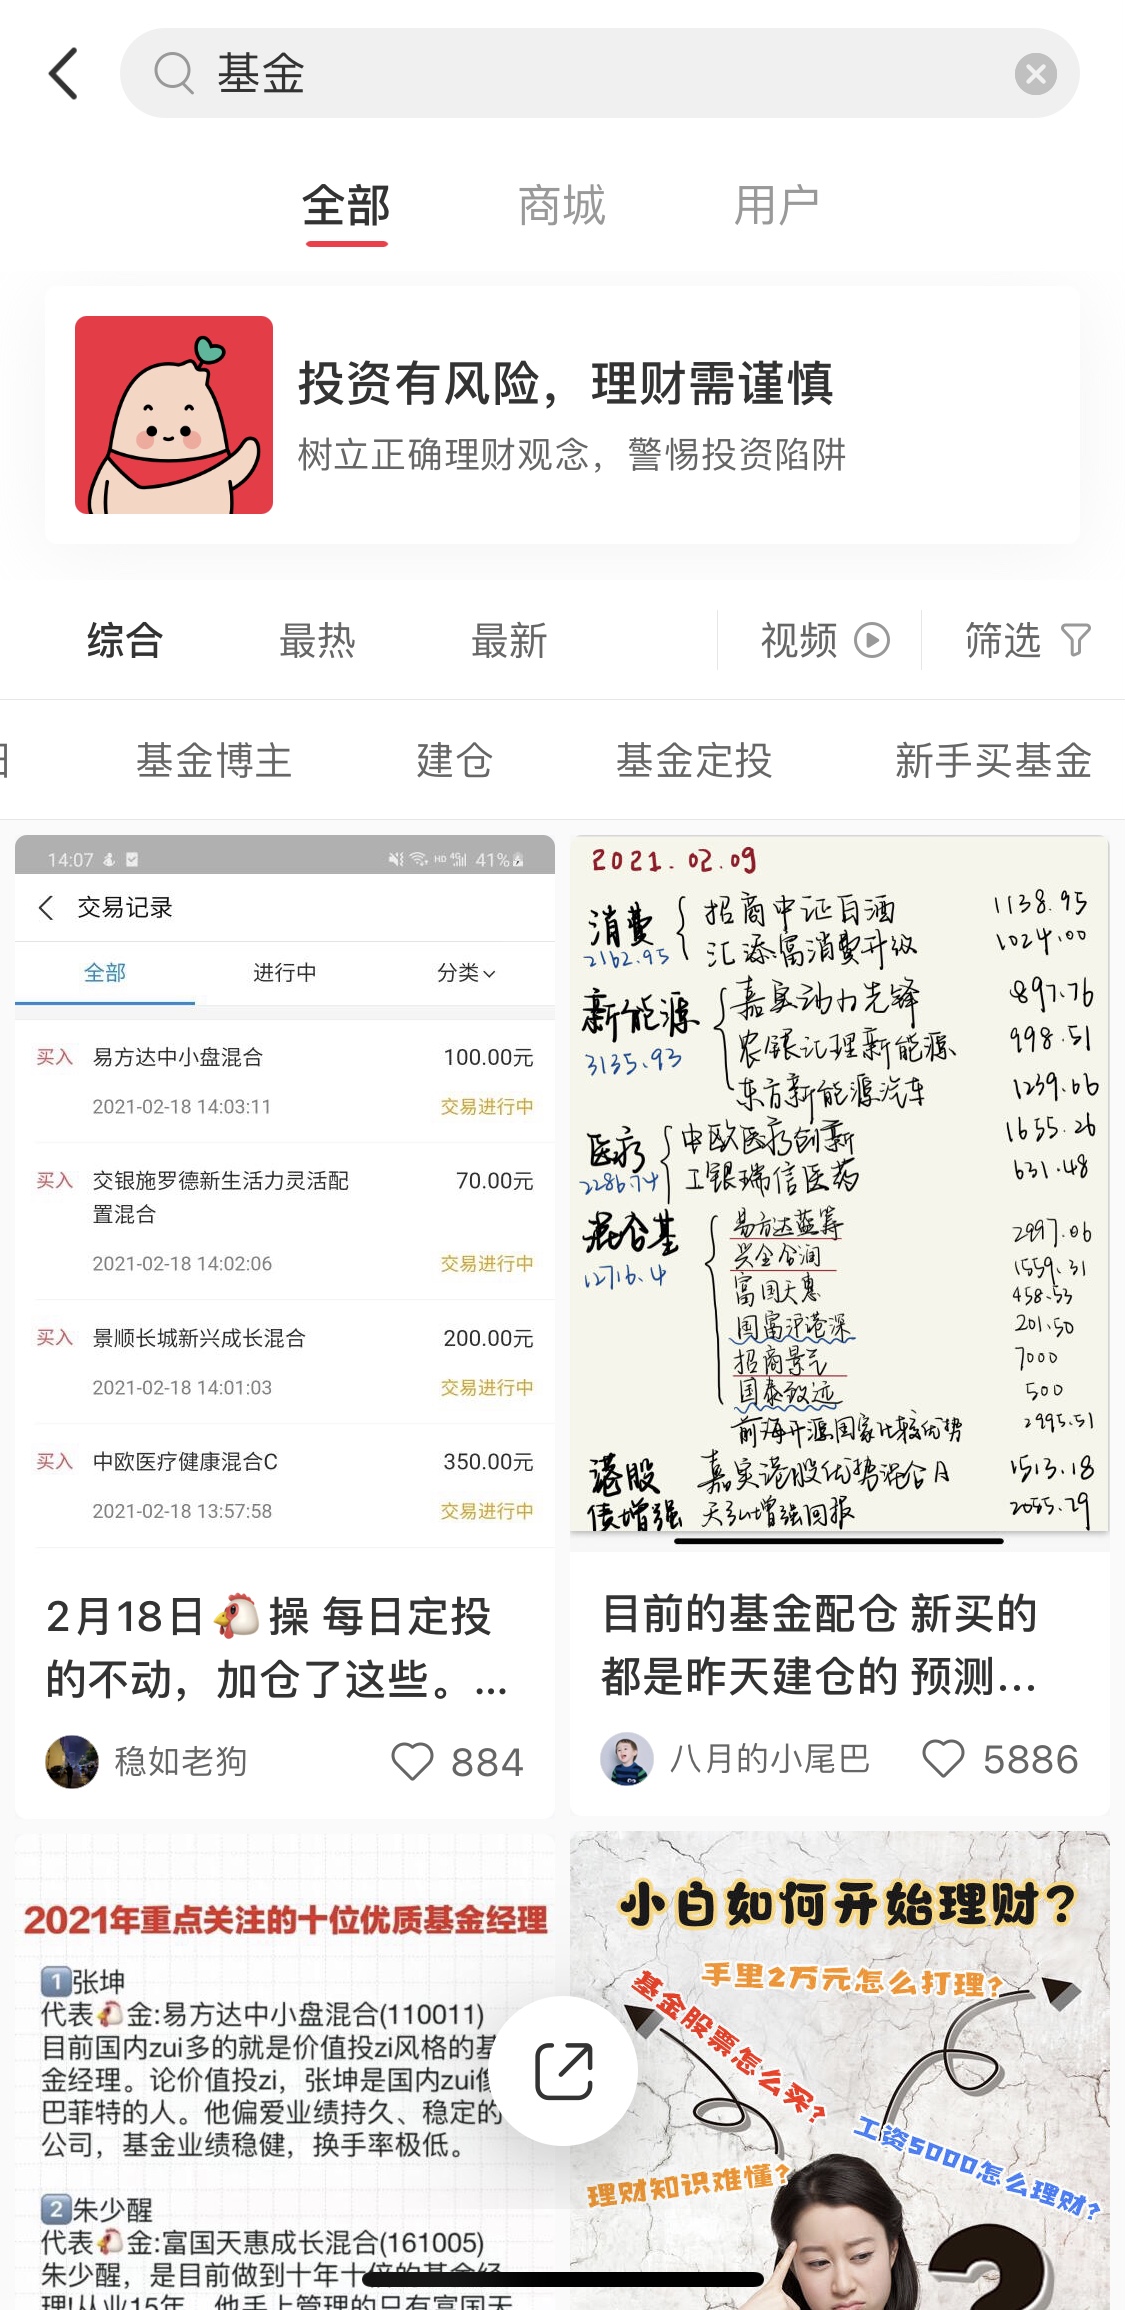 基金
全部
商城
用户
投资有风险，理财需谨慎
树立正确理财观念，警惕投资陷阱
综合
最热
最新
视频
筛选
基金博主
建仓
基金定投
新手买基金
14:07
HD 4G 41%
交易记录
全部
进行中
分类
买入 易方达中小盘混合 100.00元
2021-02-18 14:03:11 交易进行中
买入 交银施罗德新生活力灵活配 70.00元
置混合
2021-02-18 14:02:06 交易进行中
买入 景顺长城新兴成长混合 200.00元
2021-02-18 14:01:03 交易进行中
买入 中欧医疗健康混合C 350.00元
2021-02-18 13:57:58 交易进行中
2月18日🐔操 每日定投
的不动，加仓了这些。...
稳如老狗
884
2021.02.09
消费 招商中证白酒 1138.95
2162.95 汇添富消费升级 1024.00
新能源 嘉实动力先锋 897.76
3135.93 农银汇理新能源 998.51
东方新能源汽车 1239.66
医疗 中欧医疗创新 1655.26
2286.74 工银瑞信医药 631.48
混合基 易方达蓝筹 2997.06
12716.4 兴全合润 1559.31
富国天惠 458.53
国富沪港深 201.50
招商景元 7000
国泰致远 500
前海开源国家比较优势 2995.51
港股 嘉实港股优势混合A 1513.18
债增强 天弘增强回报 2055.29
目前的基金配仓 新买的
都是昨天建仓的 预测...
八月的小尾巴
5886
2021年重点关注的十位优质基金经理
1张坤
代表🐔金:易方达中小盘混合(110011)
目前国内zui多的就是价值投zi风格的基
金经理。论价值投zi，张坤是国内zui像
巴菲特的人。他偏爱业绩持久、稳定的
公司，基金业绩稳健，换手率极低。
2朱少醒
代表🐔金:富国天惠成长混合(161005)
朱少醒，是目前做到十年十倍的基金经
理!从业15年，他手上管理的只有富国天
小白如何开始理财?
手里2万元怎么打理?
基金股票怎么买?
工资5000怎么理财?
理财知识难懂?
?